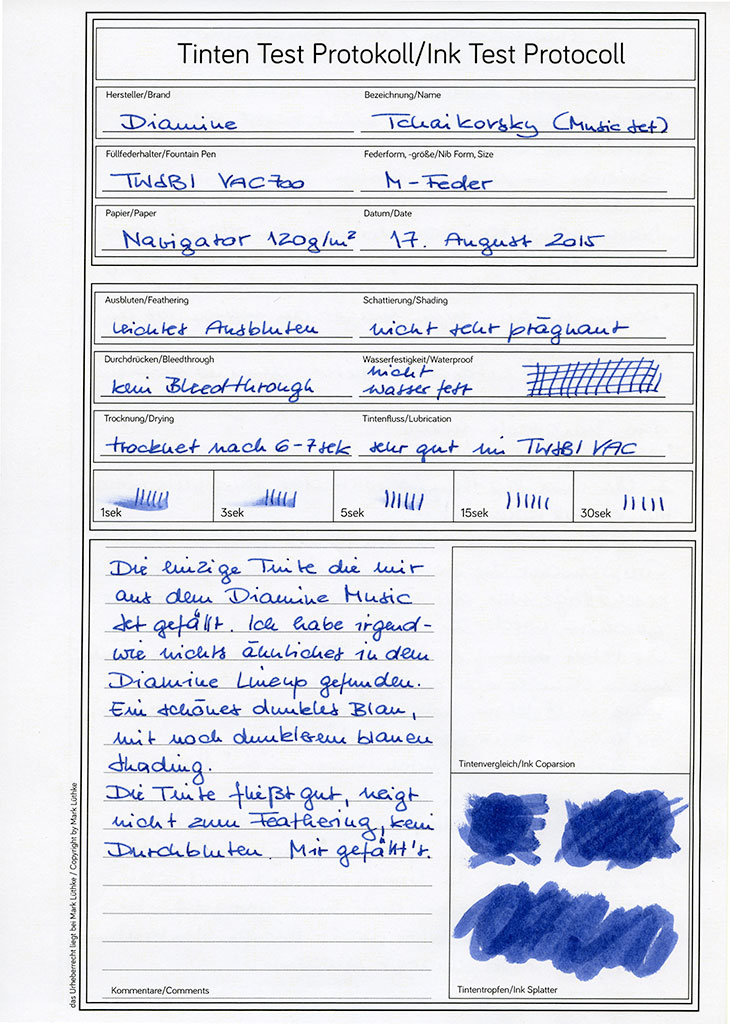 Tinten Test Protokoll/Ink Test Protocoll
Hersteller/Brand
Diamine
Bezeichnung/Name
Tchaikovsky (Music Set)
Füllfederhalter/Fountain Pen
TWSBI VAC700
Federform, -größe/Nib Form, Size
M-Feder
Papier/Paper
Navigator 120g/m²
Datum/Date
17. August 2015
Ausbluten/Feathering
leichtes Ausbluten
Schattierung/Shading
nicht sehr prägnant
Durchdrücken/Bleedthrough
kein Bleedthrough
Wasserfestigkeit/Waterproof
nicht
wasserfest
Trocknung/Drying
trocknet nach 6-7sek
Tintenfluss/Lubrication
sehr gut im TWSBI VAC
1sek
3sek
5sek
15sek
30sek
Die einzige Tinte die mir
aus dem Diamine Music
Set gefällt. Ich habe irgend-
wie nichts ähnliches in dem
Diamine Lineup gefunden.
Ein schönes dunkles Blau,
mit noch dunklerem blauen
Shading.
Die Tinte fließt gut, neigt
nicht zum Feathering, kein
Durchbluten. Mir gefällt's.
Kommentare/Comments
Tintenvergleich/Ink Coparsion
Tintentropfen/Ink Splatter
das Urheberrecht liegt bei Mark Lüthke / Copyright by Mark Lüthke